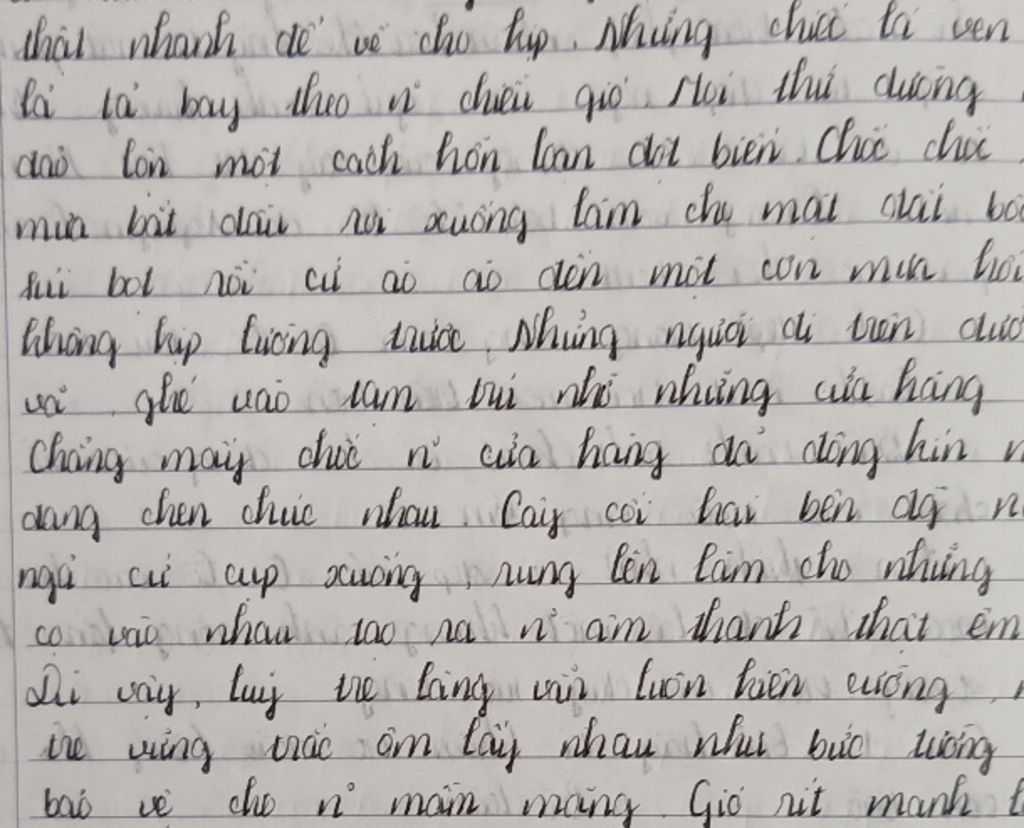 thật nhanh để về cho kịp. Những chiếc lá ven
lả tả bay theo n~ chiều gió. Mọi thứ dường
đảo lộn một cách hỗn loạn đột biến. Chốc chốc
mưa bắt đầu rơi xuống làm cho mặt đất
bọt rồi cứ ào ào đến một cơn mưa
không kịp lường trước. Những người đi trên
vã ghé vào tạm trú nhờ những cửa hàng
Chẳng mấy chốc n~ cửa hàng đã đông kín
đang chen chúc nhau. Cây cối hai bên đg
ngả cứ cụp xuống, rung lên làm cho những
cọ vào nhau tạo ra n~ âm thanh thật êm
Dù vậy, luỹ tre làng vẫn luôn kiên cường,
tre vững chắc ôm lấy nhau như bức tường
bảo vệ cho n~ mầm măng. Gió rít mạnh